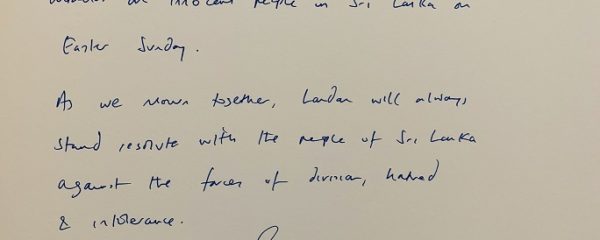 on innocent people in Sri Lanka on
Easter Sunday.
As we mourn together, London will always
stand resolute with the people of Sri Lanka
against the forces of division, hatred
& intolerance.